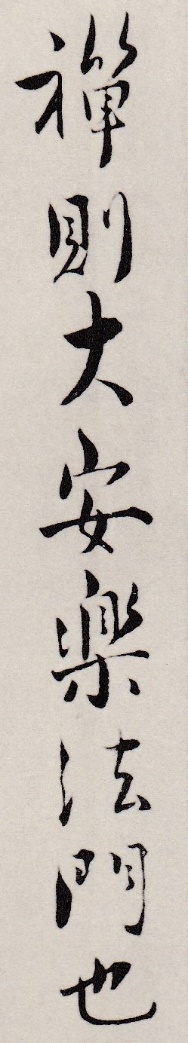 禅則大安楽法門也